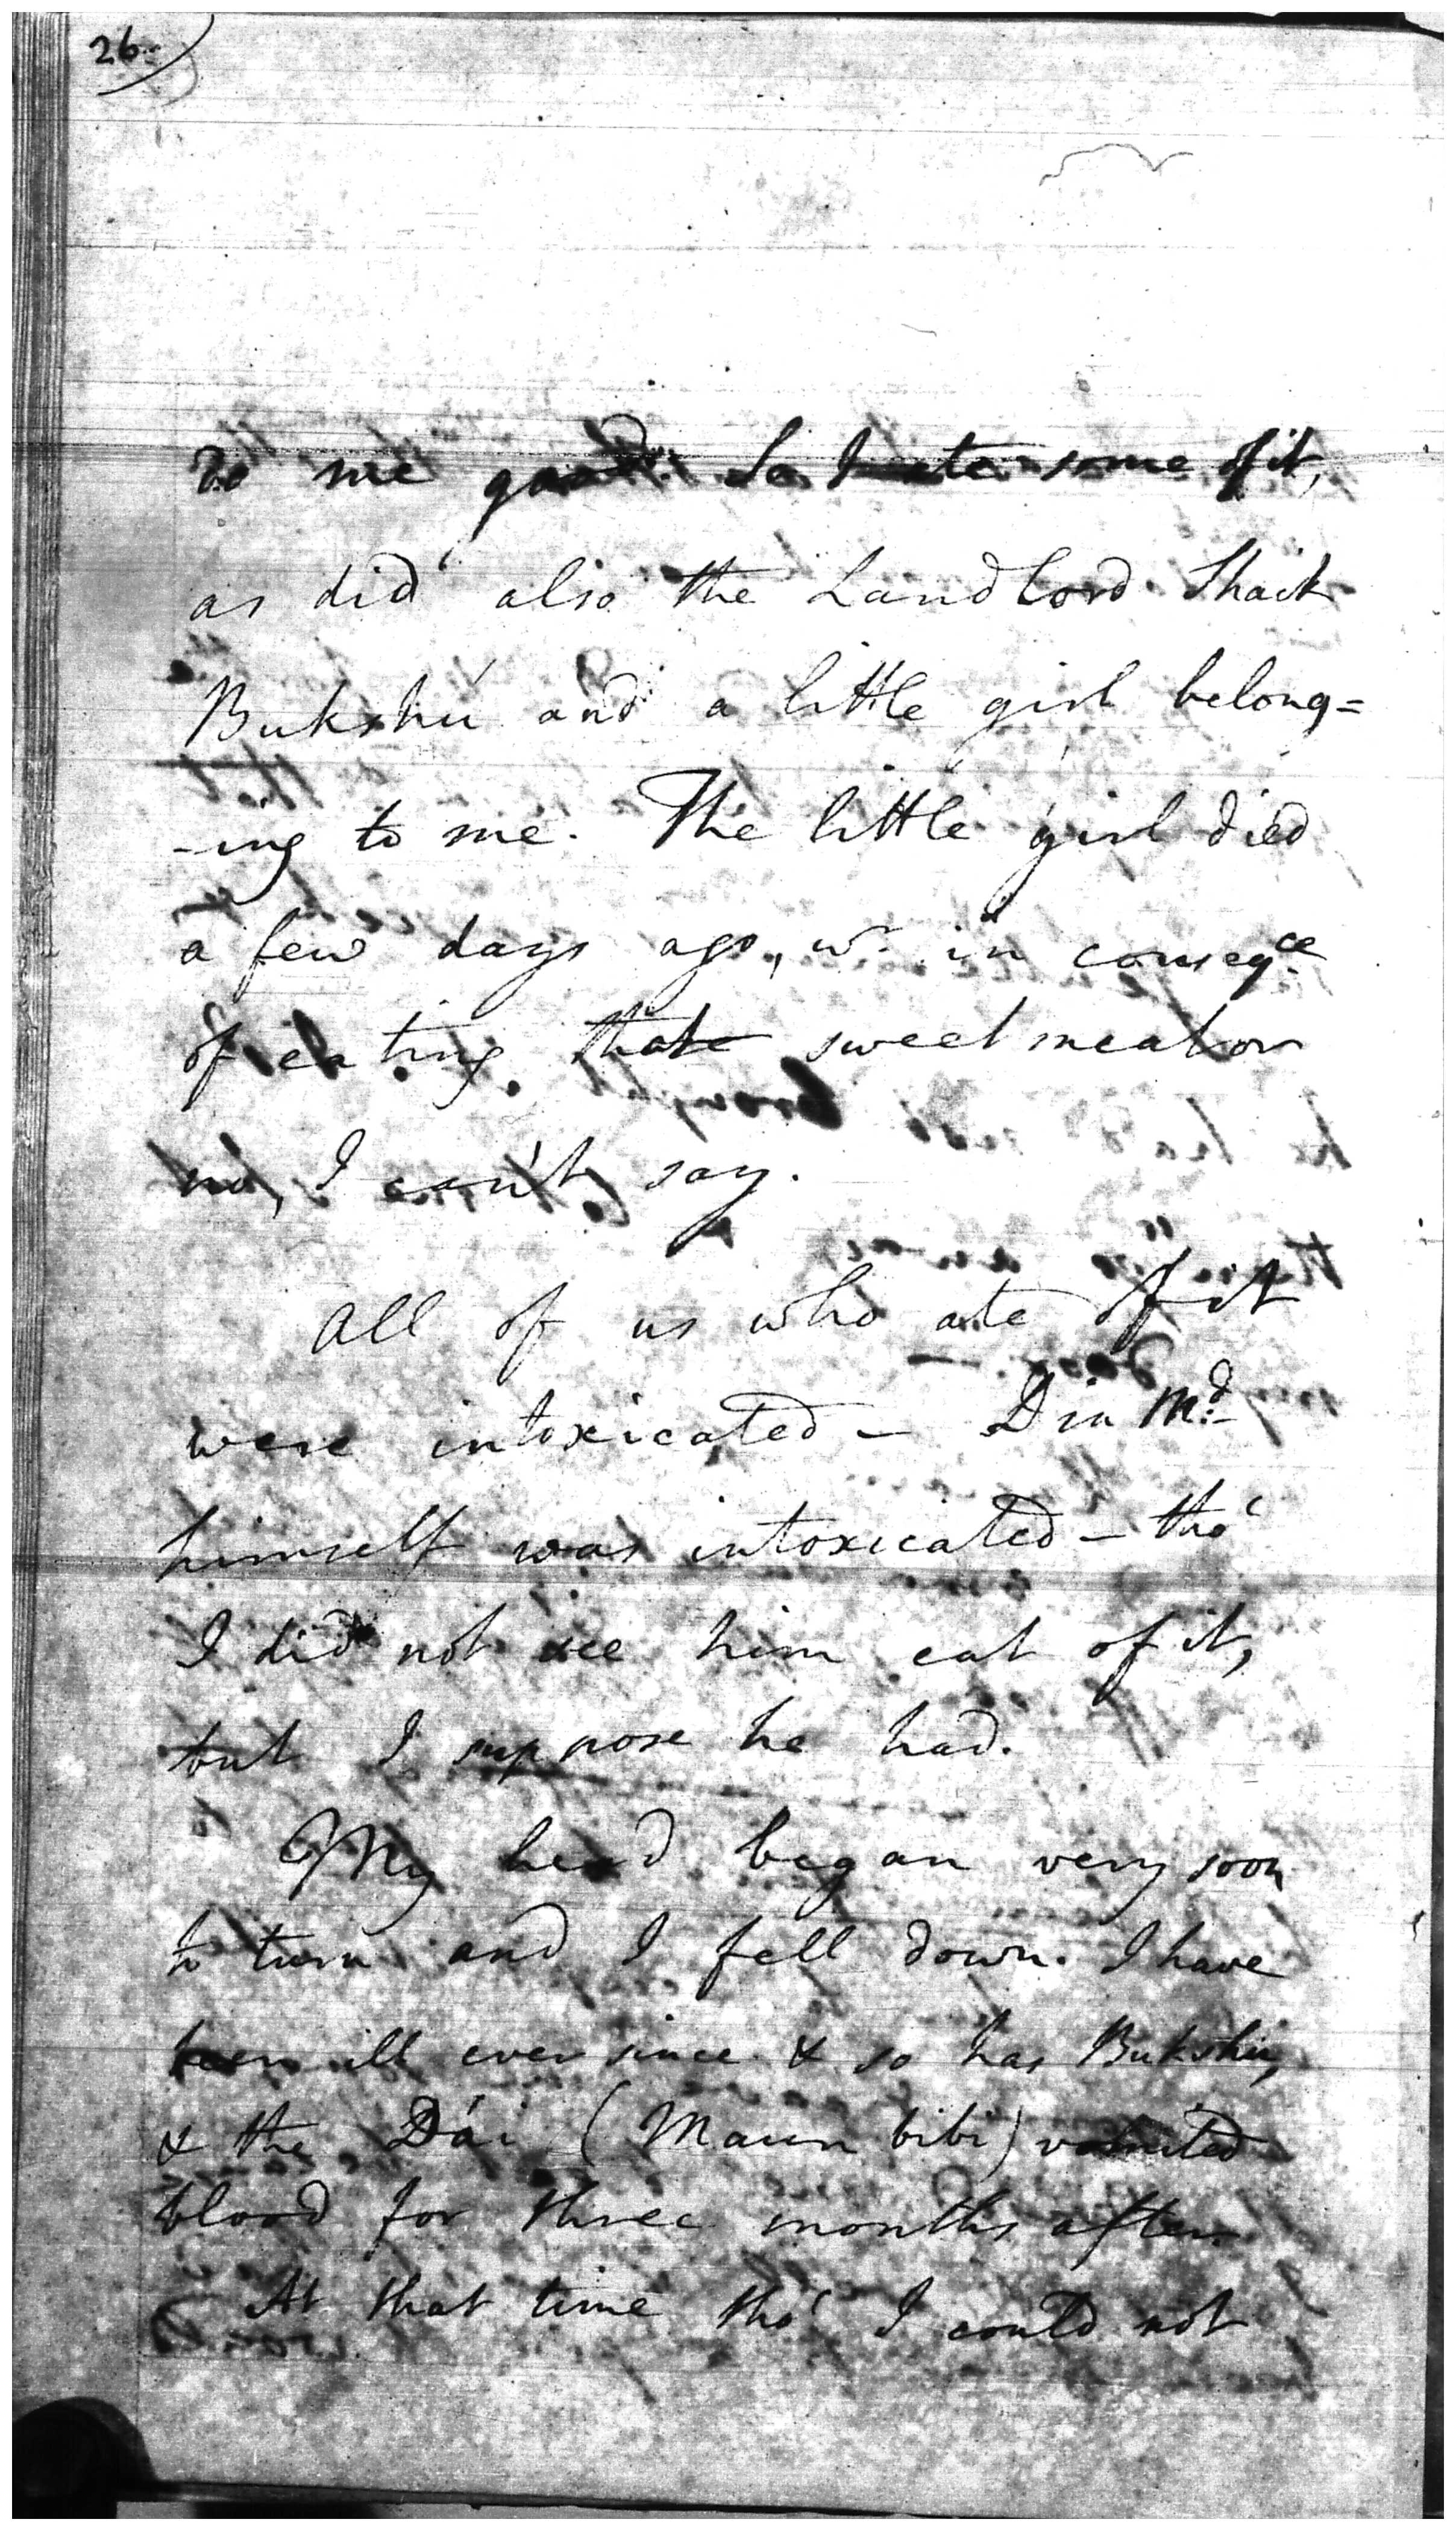 26
do me good. So I ate some of it,
as did also the Landlord Shaik
Bukshú and a little girl belong=
-ing to me. The little girl died
a few days ago, wr. in conseqce
of eating that sweetmeat or
no, I can't say.
All of us who ate of it
were intoxicated - Din Md.
himself was intoxicated - tho'
I did not see him eat of it,
but I suppose he had.
My head began very soon
to turn and I fell down. I have
been ill ever since & so has Bukshu,
& the Dái (Maun bibi) vomited
blood for three months after.
At that time tho' I could not